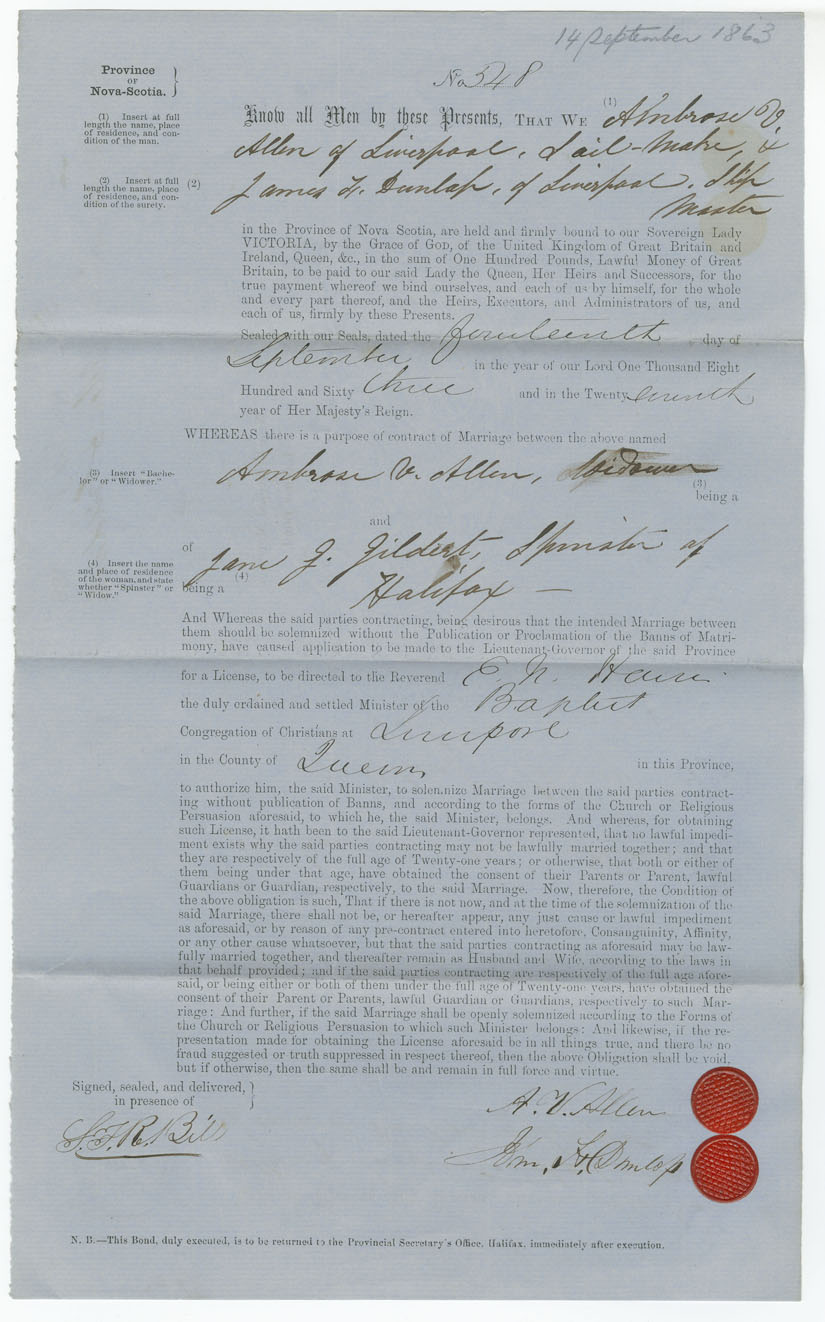 14 September 1863
No 548
Province
OF
Nova-Scotia.
(1) Insert at full
length the name, place
of residence, and con-
dition of the man.
(2) Insert at full
length the name, place
of residence, and con-
dition of the surety.
Know all Men by these Presents, THAT WE (1) Ambrose V
Allen of Liverpool, Sail-Maker, &
(2) James H. Dunlap, of Liverpool. Ship
Master
in the Province of Nova Scotia, are held and firmly bound to our Sovereign Lady
VICTORIA, by the Grace of GOD, of the United Kingdom of Great Britain and
Ireland, Queen, &c., in the sum of One Hundred Pounds, Lawful Money of Great
Britain, to be paid to our said Lady the Queen, Her Heirs and Successors, for the
true payment whereof we bind ourselves, and each of us by himself, for the whole
and every part thereof, and the Heirs, Executors, and Administrators of us, and
each of us, firmly by these Presents.
Sealed with our Seals, dated the fourteenth day of
September in the year of our Lord One Thousand Eight
Hundred and Sixty three and in the Twenty seventh
year of Her Majesty's Reign.
WHEREAS there is a purpose of contract of Marriage between the above named
(3) Insert "Bache-
lor" or "Widower."
Ambrose V. Allen, Widower
(3)
being a
and
of Jane J. Gildert, Spinster of
(4) Insert the name
and place of residence
of the woman, and state
whether "Spinster" or
"Widow."
being a (4) Halifax —
And Whereas the said parties contracting, being desirous that the intended Marriage between
them should be solemnized without the Publication or Proclamation of the Banns of Matri-
mony, have caused application to be made to the Lieutenant-Governor of the said Province
for a License, to be directed to the Reverend E. N. Harris
the duly ordained and settled Minister of the Baptist
Congregation of Christians at Liverpool
in the County of Queens in this Province,
to authorize him, the said Minister, to solemnize Marriage between the said parties contract-
ing without publication of Banns, and according to the forms of the Church or Religious
Persuasion aforesaid, to which he, the said Minister, belongs. And whereas, for obtaining
such License, it hath been to the said Lieutenant-Governor represented, that no lawful impedi-
ment exists why the said parties contracting may not be lawfully married together; and that
they are respectively of the full age of Twenty-one years; or otherwise, that both or either of
them being under that age, have obtained the consent of their Parents or Parent, lawful
Guardians or Guardian, respectively, to the said Marriage. Now, therefore, the Condition of
the above obligation is such, That if there is not now, and at the time of the solemnization of the
said Marriage, there shall not be, or hereafter appear, any just cause or lawful impediment
as aforesaid, or by reason of any pre-contract entered into heretofore, Consanguinity, Affinity,
or any other cause whatsoever, but that the said parties contracting as aforesaid may be law-
fully married together, and thereafter remain as Husband and Wife, according to the laws in
that behalf provided; and if the said parties contracting are respectively of the full age afore-
said, or being either or both of them under the full age of Twenty-one years, have obtained the
consent of their Parent or Parents, lawful Guardian or Guardians, respectively to such Mar-
riage: And further, if the said Marriage shall be openly solemnized according to the Forms of
the Church or Religious Persuasion to which such Minister belongs: And likewise, if the re-
presentation made for obtaining the License aforesaid be in all things true, and there be no
fraud suggested or truth suppressed in respect thereof, then the above Obligation shall be void,
but if otherwise, then the same shall be and remain in full force and virtue.
Signed, sealed, and delivered,
in presence of
A. V. Allen
S. F. R. Bill
Jam. H. Dunlap
N. B.—This Bond, duly executed, is to be returned to the Provincial Secretary's Office, Halifax, immediately after execution.